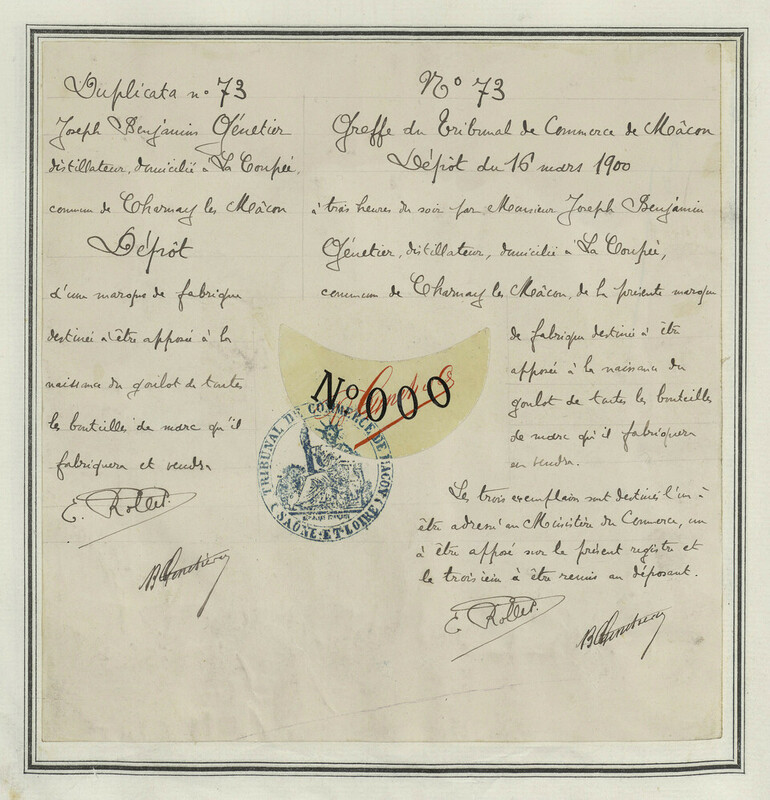 Duplicata nº 73
Joseph Benjamin Génetier
distillateur, domicilié à La Coupée,
commun de Charnay les Mâcon
Dépôt
d'une marque de fabrique
destinée à être apposée à la
naissance du goulot de toutes
les bouteilles de marc qu'il
fabriquera et vendra
E. Rollet
Nº 73
Greffe du Tribunal de Commerce de Mâcon
Dépôt du 16 mars 1900
à trois heures du soir par Monsieur Joseph Benjamin
Génetier, distillateur, domicilié à La Coupée,
commun de Charnay les Mâcon, de la présente marque
de fabrique destinée à être
apposée à la naissance du
goulot de toutes les bouteilles
de marc qu'il fabriquera
et vendra.
Les trois exemplaires sont destinés l'un à
être adressé au Ministère du Commerce, un
à être apposé sur le présent registre et
le troisième à être remis au déposant.
E. Rollet
Nº 000
TRIBUNAL DE COMMERCE DE MACON
(SAÔNE-ET-LOIRE)